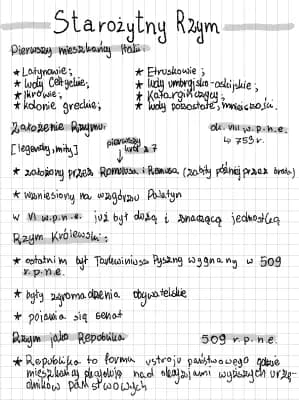 Starożytny Rzym
Pierwszy mieszkańcy Italii:
★ Latynowie;
★ ludy celtyckie;
★ Ilirowie;
★ kolonie greckie;
★ Etruskowie;
★ ludy umbryjsko-oskijskie;
★ Kartagińczycy;
★ ludy pozostałe, mniejszości.
Założenie Rzymu: ok. VIII w.p.n.e.
↳ 753r.
[legendy, mity]
pierwszy król z 7
★ założony przez Romulusa i Remusa (zabity później przez brata)
★ wzniesiony na wzgórzu Palatyn
w VI w.p.n.e. już był dużą i znaczącą jednostką
Rzym Królewski:
★ ostatnim był Tarkwiniusz Pyszny wygnany w 509
r.p.n.e.
★ były zgromadzenia obywatelskie
★ pojawia się senat
Rzym jako Republika 509 r.p.n.e.
★ Republika to forma ustroju państwowego gdzie
mieszkańcy głosują nad decyzjami wyższych urzę-
dników państwowych